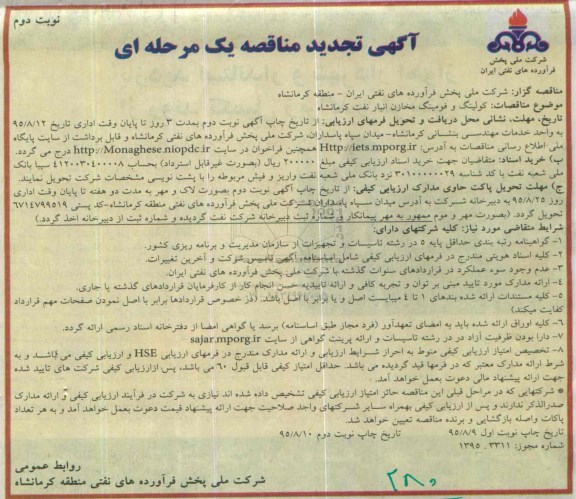 نوبت دوم
شرکت ملی پخش
فرآورده های نفتی ایران
آگهی تجدید مناقصه یک مرحله ای
مناقصه گزار: شرکت ملی پخش فرآورده های نفتی ایران - منطقه کرمانشاه
موضوع مناقصات: کولینگ و فومینگ مخازن انبار نفت کرمانشاه
تاریخ، مهلت، نشانی محل دریافت و تحویل فرمهای ارزیابی: از تاریخ چاپ آگهی نوبت دوم بمدت ۳ روز تا پایان وقت اداری تاریخ ۹۵/۸/۱۲
به واحد خدمات مهندسی بنشانی کرمانشاه- میدان سپاه پاسداران، شرکت ملی پخش فرآورده های نفتی کرمانشاه و قابل برداشت از سایت پایگاه
ملی اطلاع رسانی مناقصات به آدرس: Http://iets.mporg.ir همچنین فراخوان در سایت http://Monaghese.niopdc.ir درج می گردد.
ب) خرید اسناد: متقاضیان جهت خرید اسناد ارزیابی کیفی مبلغ ۲۰۰۰۰۰ ریال (بصورت غیرقابل استرداد) بحساب ۴۱۲۰۰۳۰۴۰۰۰۸ سیبا بانک
ملی شعبه نفت با کد شناسه ۳۰۱۰۰۰۰۰۰۲۹ نزد بانک ملی شعبه نفت واریز و فیش مربوطه را با پشت نویسی مشخصات شرکت تحویل نمایند.
ج) مهلت تحویل پاکت حاوی مدارک ارزیابی کیفی: از تاریخ چاپ آگهی نوبت دوم بصورت لاک و مهر به مدت دو هفته تا پایان وقت اداری
روز ۹۵/۸/۲۵ به دبیرخانه شرکت به آدرس میدان سپاه پاسداران شرکت ملی پخش فرآورده های نفتی منطقه کرمانشاه-کد پستی ۶۷۱۴۷۹۹۵۱۹
تحویل گردد. (بصورت مهر و موم ممهور به مهر پیمانکار و شماره ثبت دبیرخانه شرکت نفت گردیده و شماره ثبت از دبیرخانه اخذ گردد.)
شرایط متقاضی مورد نیاز: کلیه شرکتهای دارای:
۱- گواهینامه رتبه بندی حداقل پایه ۵ در رشته تاسیسات و تجهیزات از سازمان مدیریت و برنامه ریزی کشور.
۲- کلیه اسناد هویتی مندرج در فرمهای ارزیابی کیفی شامل اساسنامه، آگهی تاسیس شرکت و آخرین تغییرات.
۳- عدم وجود سوء عملکرد در قراردادهای سنوات گذشته با شرکت ملی پخش فرآورده های نفتی ایران.
۴- ارائه مدارک مورد تایید مبنی بر توان و تجربه کافی و ارائه تاییدیه حسن انجام کار از کارفرمایان قراردادهای گذشته یا جاری.
۵- کلیه مستندات ارائه شده بندهای ۱ تا ۴ میبایست اصل و یا برابر با اصل باشد. (در خصوص قراردادها برابر با اصل نمودن صفحات مهم قرارداد
کفایت میکند)
۶- کلیه اوراق ارائه شده باید به امضای تعهدآور (فرد مجاز طبق اساسنامه) برسد یا گواهی امضا از دفترخانه اسناد رسمی ارائه گردد.
۷- دارا بودن ظرفیت آزاد در در رشته تاسیسات و ارائه پرینت گواهی از سایت sajar.mporg.ir
۸- تخصیص امتیاز ارزیابی کیفی منوط به احراز شرایط ارزیابی و ارائه مدارک مندرج در فرمهای ارزیابی HSE و ارزیابی کیفی می باشد و به
شرط ارائه مدارک معتبر که در فرمها قید گردیده می باشد. حداقل امتیاز کیفی قابل قبول ۶۰ می باشد، پس ازارزیابی کیفی شرکت های تایید شده
جهت ارائه پیشنهاد مالی دعوت بعمل خواهد آمد.
* شرکتهایی که در مراحل قبلی این مناقصه حائز امتیاز ارزیابی کیفی تشخیص داده شده اند نیازی به شرکت در فرآیند ارزیابی کیفی و ارائه مدارک
صدرالذکر ندارند و پس از ارزیابی کیفی بهمراه سایر شرکتهای واجد صلاحیت جهت ارائه پیشنهاد قیمت دعوت بعمل خواهد آمد و به هر تعداد
پاکات واصله بازگشایی و برنده مناقصه تعیین خواهد شد.
تاریخ چاپ نوبت اول ۹۵/۸/۹ تاریخ چاپ نوبت دوم ۹۵/۸/۱۰
شماره مجوز: ۳۳۱۱ . ۱۳۹۵
روابط عمومی
شرکت ملی پخش فرآورده های نفتی منطقه کرمانشاه
۲۸۰